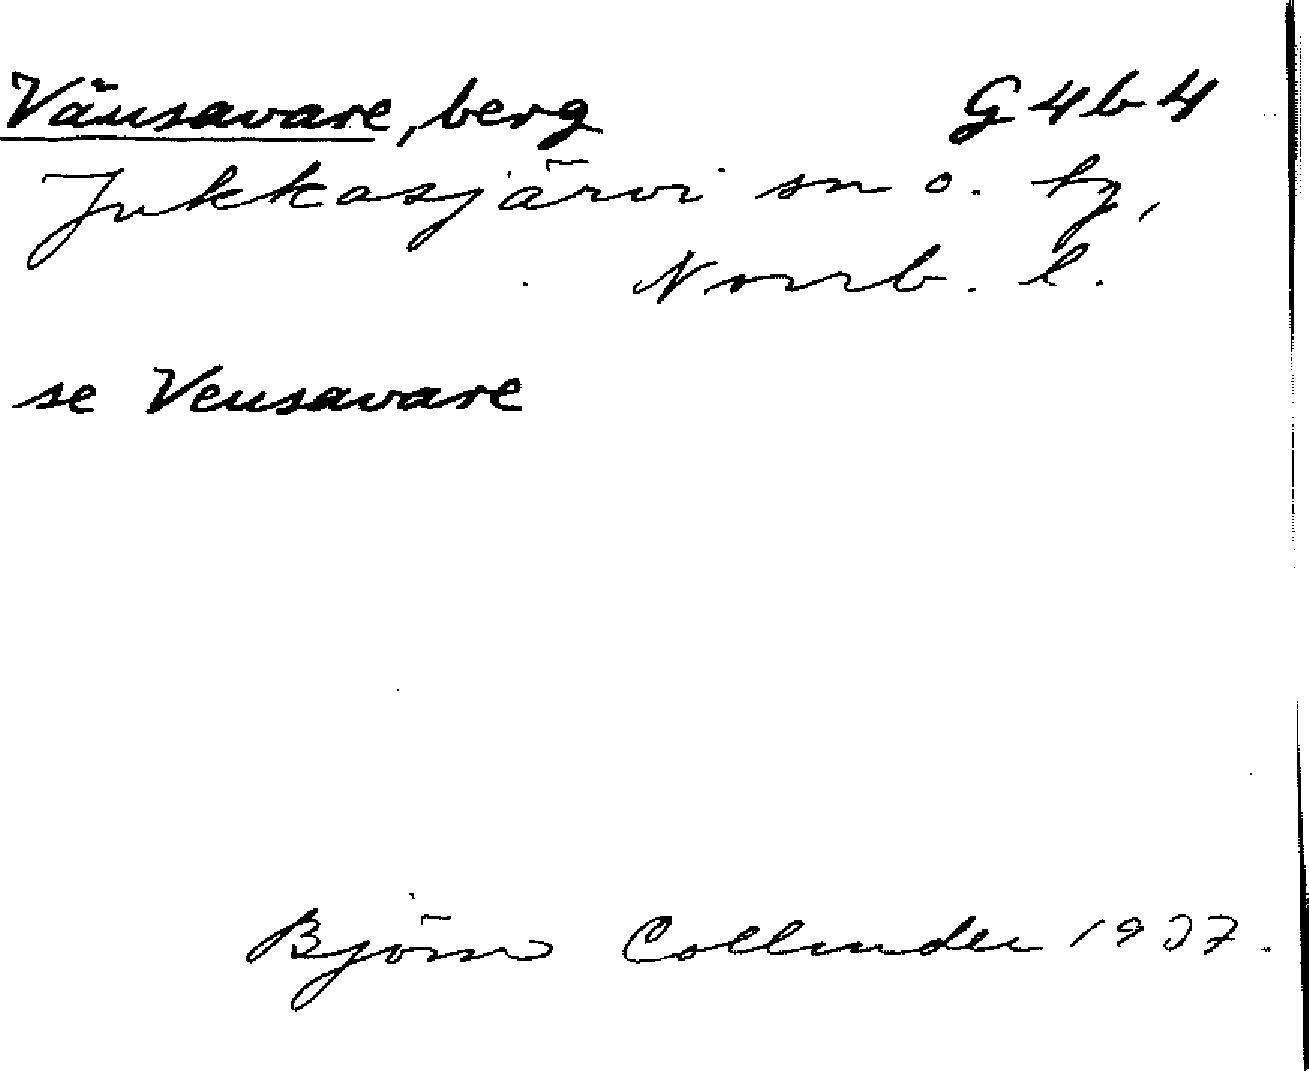 Vänsavare, berg G4b4
Jukkasjärvi sn o. tg,
Norrb. l.
se Vensavare
Björn Collinder 1937.